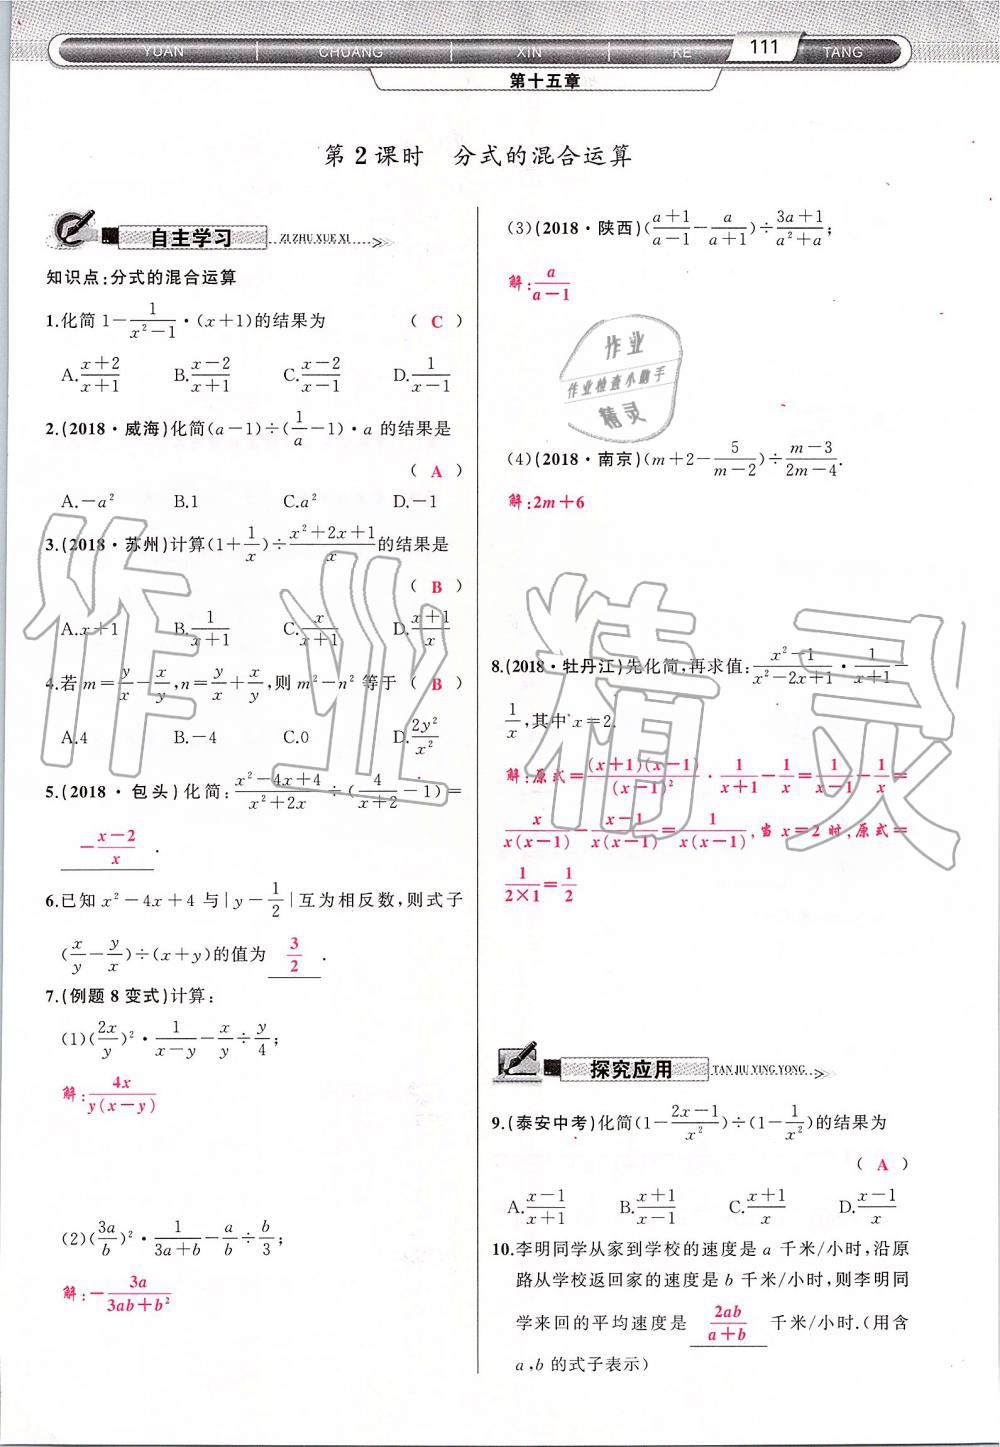 YUAN CHUANG XIN KE 111 TANG
第十五章
第2课时 分式的混合运算
自主学习 ZI ZHU XUE XI
知识点:分式的混合运算
1.化简 1−\frac{1}{x²−1}·(x+1)的结果为 ( C )
A.\frac{x+2}{x+1} B.\frac{x−2}{x+1} C.\frac{x−2}{x−1} D.\frac{1}{x−1}
2.(2018·威海)化简(a−1)÷(\frac{1}{a}−1)·a 的结果是
( A )
A.−a² B.1 C.a² D.−1
3.(2018·苏州)计算(1+\frac{1}{x})÷\frac{x²+2x+1}{x}的结果是
( B )
A.x+1 B.\frac{1}{x+1} C.\frac{x}{x+1} D.\frac{x+1}{x}
4.若 m=\frac{y}{x}−\frac{x}{y},n=\frac{y}{x}+\frac{x}{y},则 m²−n² 等于 ( B )
A.4 B.−4 C.0 D.\frac{2y²}{x²}
5.(2018·包头)化简:\frac{x²−4x+4}{x²+2x}÷(\frac{4}{x+2}−1)=
−\frac{x−2}{x}.
6.已知 x²−4x+4 与|y−\frac{1}{2}|互为相反数,则式子
(\frac{x}{y}−\frac{y}{x})÷(x+y)的值为 \frac{3}{2}.
7.(例题 8 变式)计算:
(1)(\frac{2x}{y})²·\frac{1}{x−y}−\frac{x}{y}÷\frac{y}{4};
解:\frac{4x}{y(x−y)}
(2)(\frac{3a}{b})²·\frac{1}{3a+b}−\frac{a}{b}÷\frac{b}{3};
解:−\frac{3a}{3ab+b²}
(3)(2018·陕西)(\frac{a+1}{a−1}−\frac{a}{a+1})÷\frac{3a+1}{a²+a};
解:\frac{a}{a−1}
作业
作业检查小助手
精灵
(4)(2018·南京)(m+2−\frac{5}{m−2})÷\frac{m−3}{2m−4}.
解:2m+6
8.(2018·牡丹江)先化简,再求值:\frac{x²−1}{x²−2x+1}·\frac{1}{x+1}−
\frac{1}{x},其中 x=2.
解:原式=\frac{(x+1)(x−1)}{(x−1)²}·\frac{1}{x+1}−\frac{1}{x}=\frac{1}{x−1}−\frac{1}{x}=
\frac{x}{x(x−1)}−\frac{x−1}{x(x−1)}=\frac{1}{x(x−1)},当 x=2 时,原式=
\frac{1}{2×1}=\frac{1}{2}
探究应用 TAN JIU YING YONG
9.(泰安中考)化简(1−\frac{2x−1}{x²})÷(1−\frac{1}{x²})的结果为
( A )
A.\frac{x−1}{x+1} B.\frac{x+1}{x−1} C.\frac{x+1}{x} D.\frac{x−1}{x}
10.李明同学从家到学校的速度是 a 千米/小时,沿原
路从学校返回家的速度是 b 千米/小时,则李明同
学来回的平均速度是 \frac{2ab}{a+b} 千米/小时.(用含
a,b 的式子表示)
作业精灵